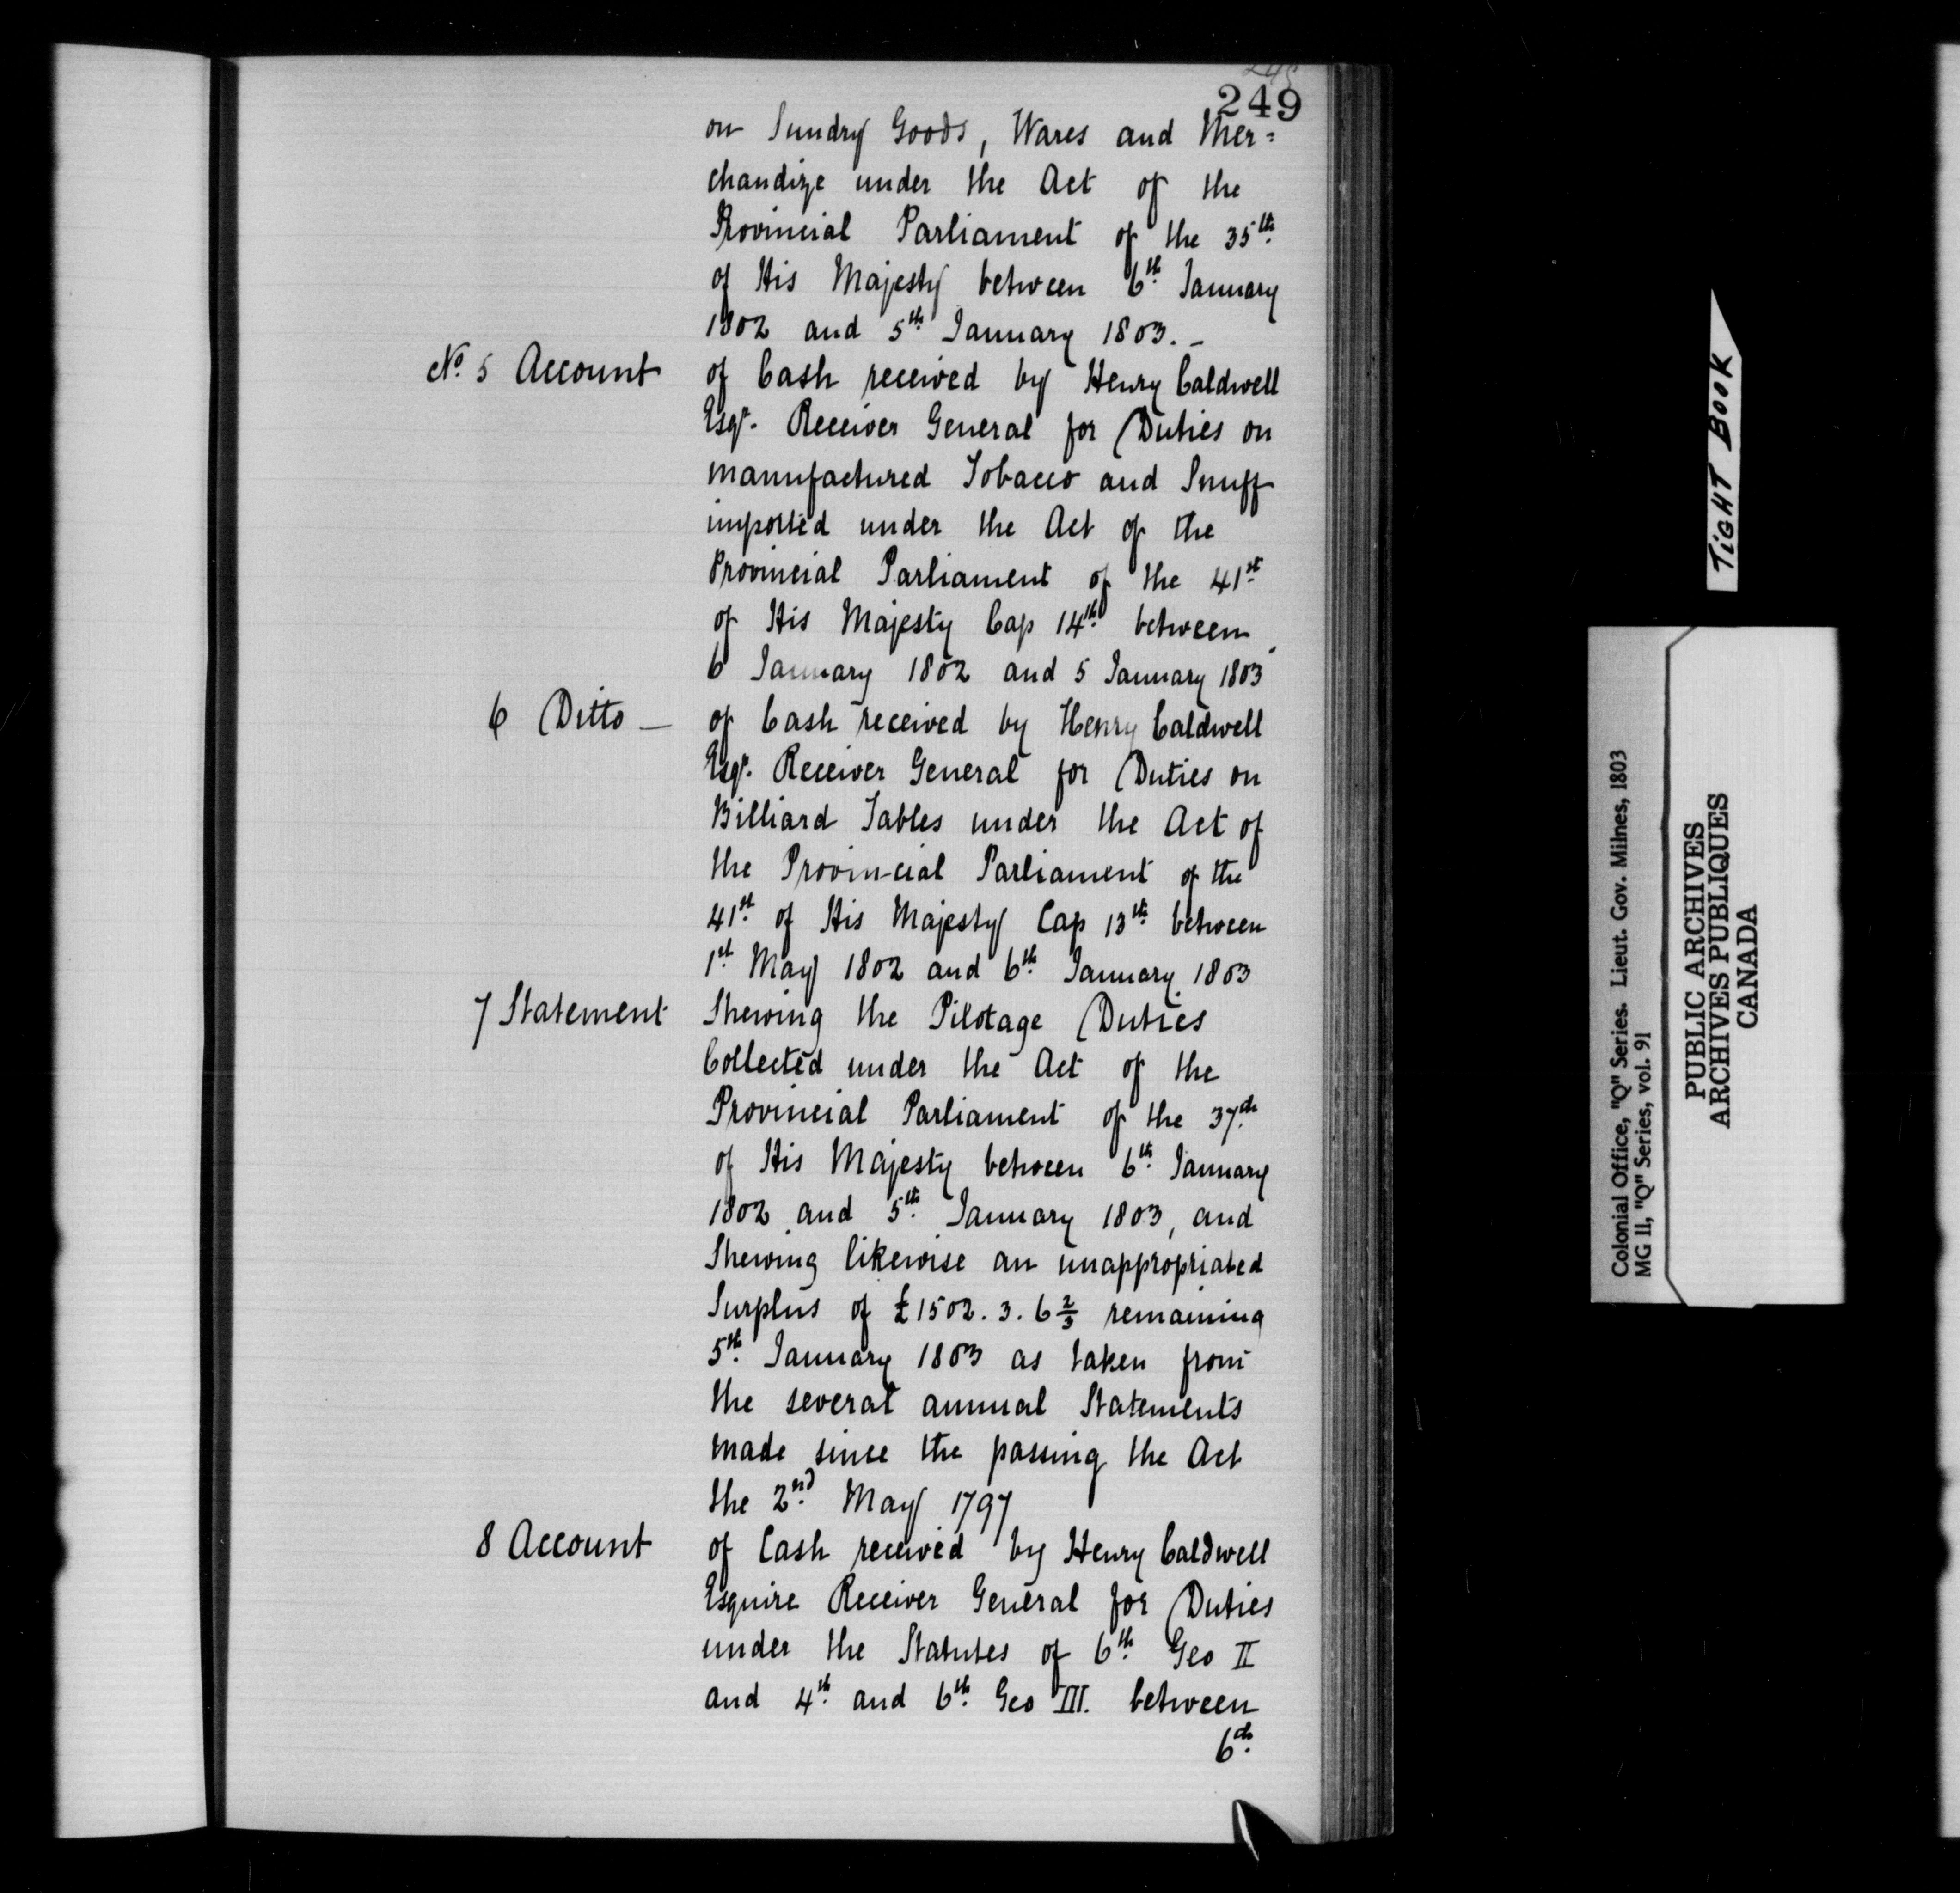 249
on Sundry Goods, Wares and Mer=
chandize under the Act of the
Provincial Parliament of the 35th
of His Majesty between 6th January
1802 and 5th January 1803. -
No. 5 Account of Cash received by Henry Caldwell
Esqr. Receiver General for Duties on
manufactured Tobacco and Snuff
imported under the Act of the
Provincial Parliament of the 41st
of His Majesty Cap 14th between
6 January 1802 and 5 January 1803
6 Ditto — of Cash received by Henry Caldwell
Esqr. Receiver General for Duties on
Billiard Tables under the Act of
the Provincial Parliament of the
41st of His Majesty Cap 13th between
1st May 1802 and 6th January 1803
7 Statement Shewing the Pilotage Duties
Collected under the Act of the
Provincial Parliament of the 37th
of His Majesty between 6th January
1802 and 5th January 1803, and
Shewing likewise an unappropriated
Surplus of £1502. 3. 6 2/3 remaining
5th January 1803 as taken from
the several annual Statements
made since the passing the Act
the 2nd May 1797
8 Account of Cash received by Henry Caldwell
Esquire Receiver General for Duties
under the Statutes of 6th Geo II
and 4th and 6th Geo III. between
6th
TIGHT BOOK
Colonial Office, "Q" Series. Lieut. Gov. Milnes, 1803
MG 11, "Q" Series, vol. 91
PUBLIC ARCHIVES
ARCHIVES PUBLIQUES
CANADA